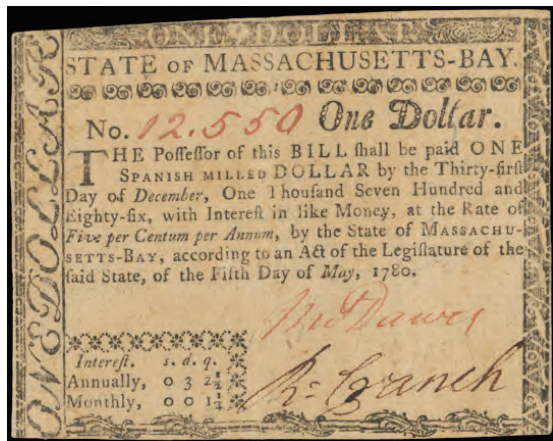 ONE DOLLAR
STATE OF MASSACHUSETTS-BAY.
No. 12.550 One Dollar.
THE Poſſeſſor of this BILL ſhall be paid ONE
SPANISH MILLED DOLLAR by the Thirty-firſt
Day of December, One Thouſand Seven Hundred and
Eighty-ſix, with Intereſt in like Money, at the Rate of
Five per Centum per Annum, by the State of MASSACHU-
SETTS-BAY, according to an Act of the Legiſlature of the
ſaid State, of the Fifth Day of May, 1780.
Intereſt. s. d. q.
Annually, 0 3 2½
Monthly, 0 0 1¼
R: Cranch
ONE DOLLAR